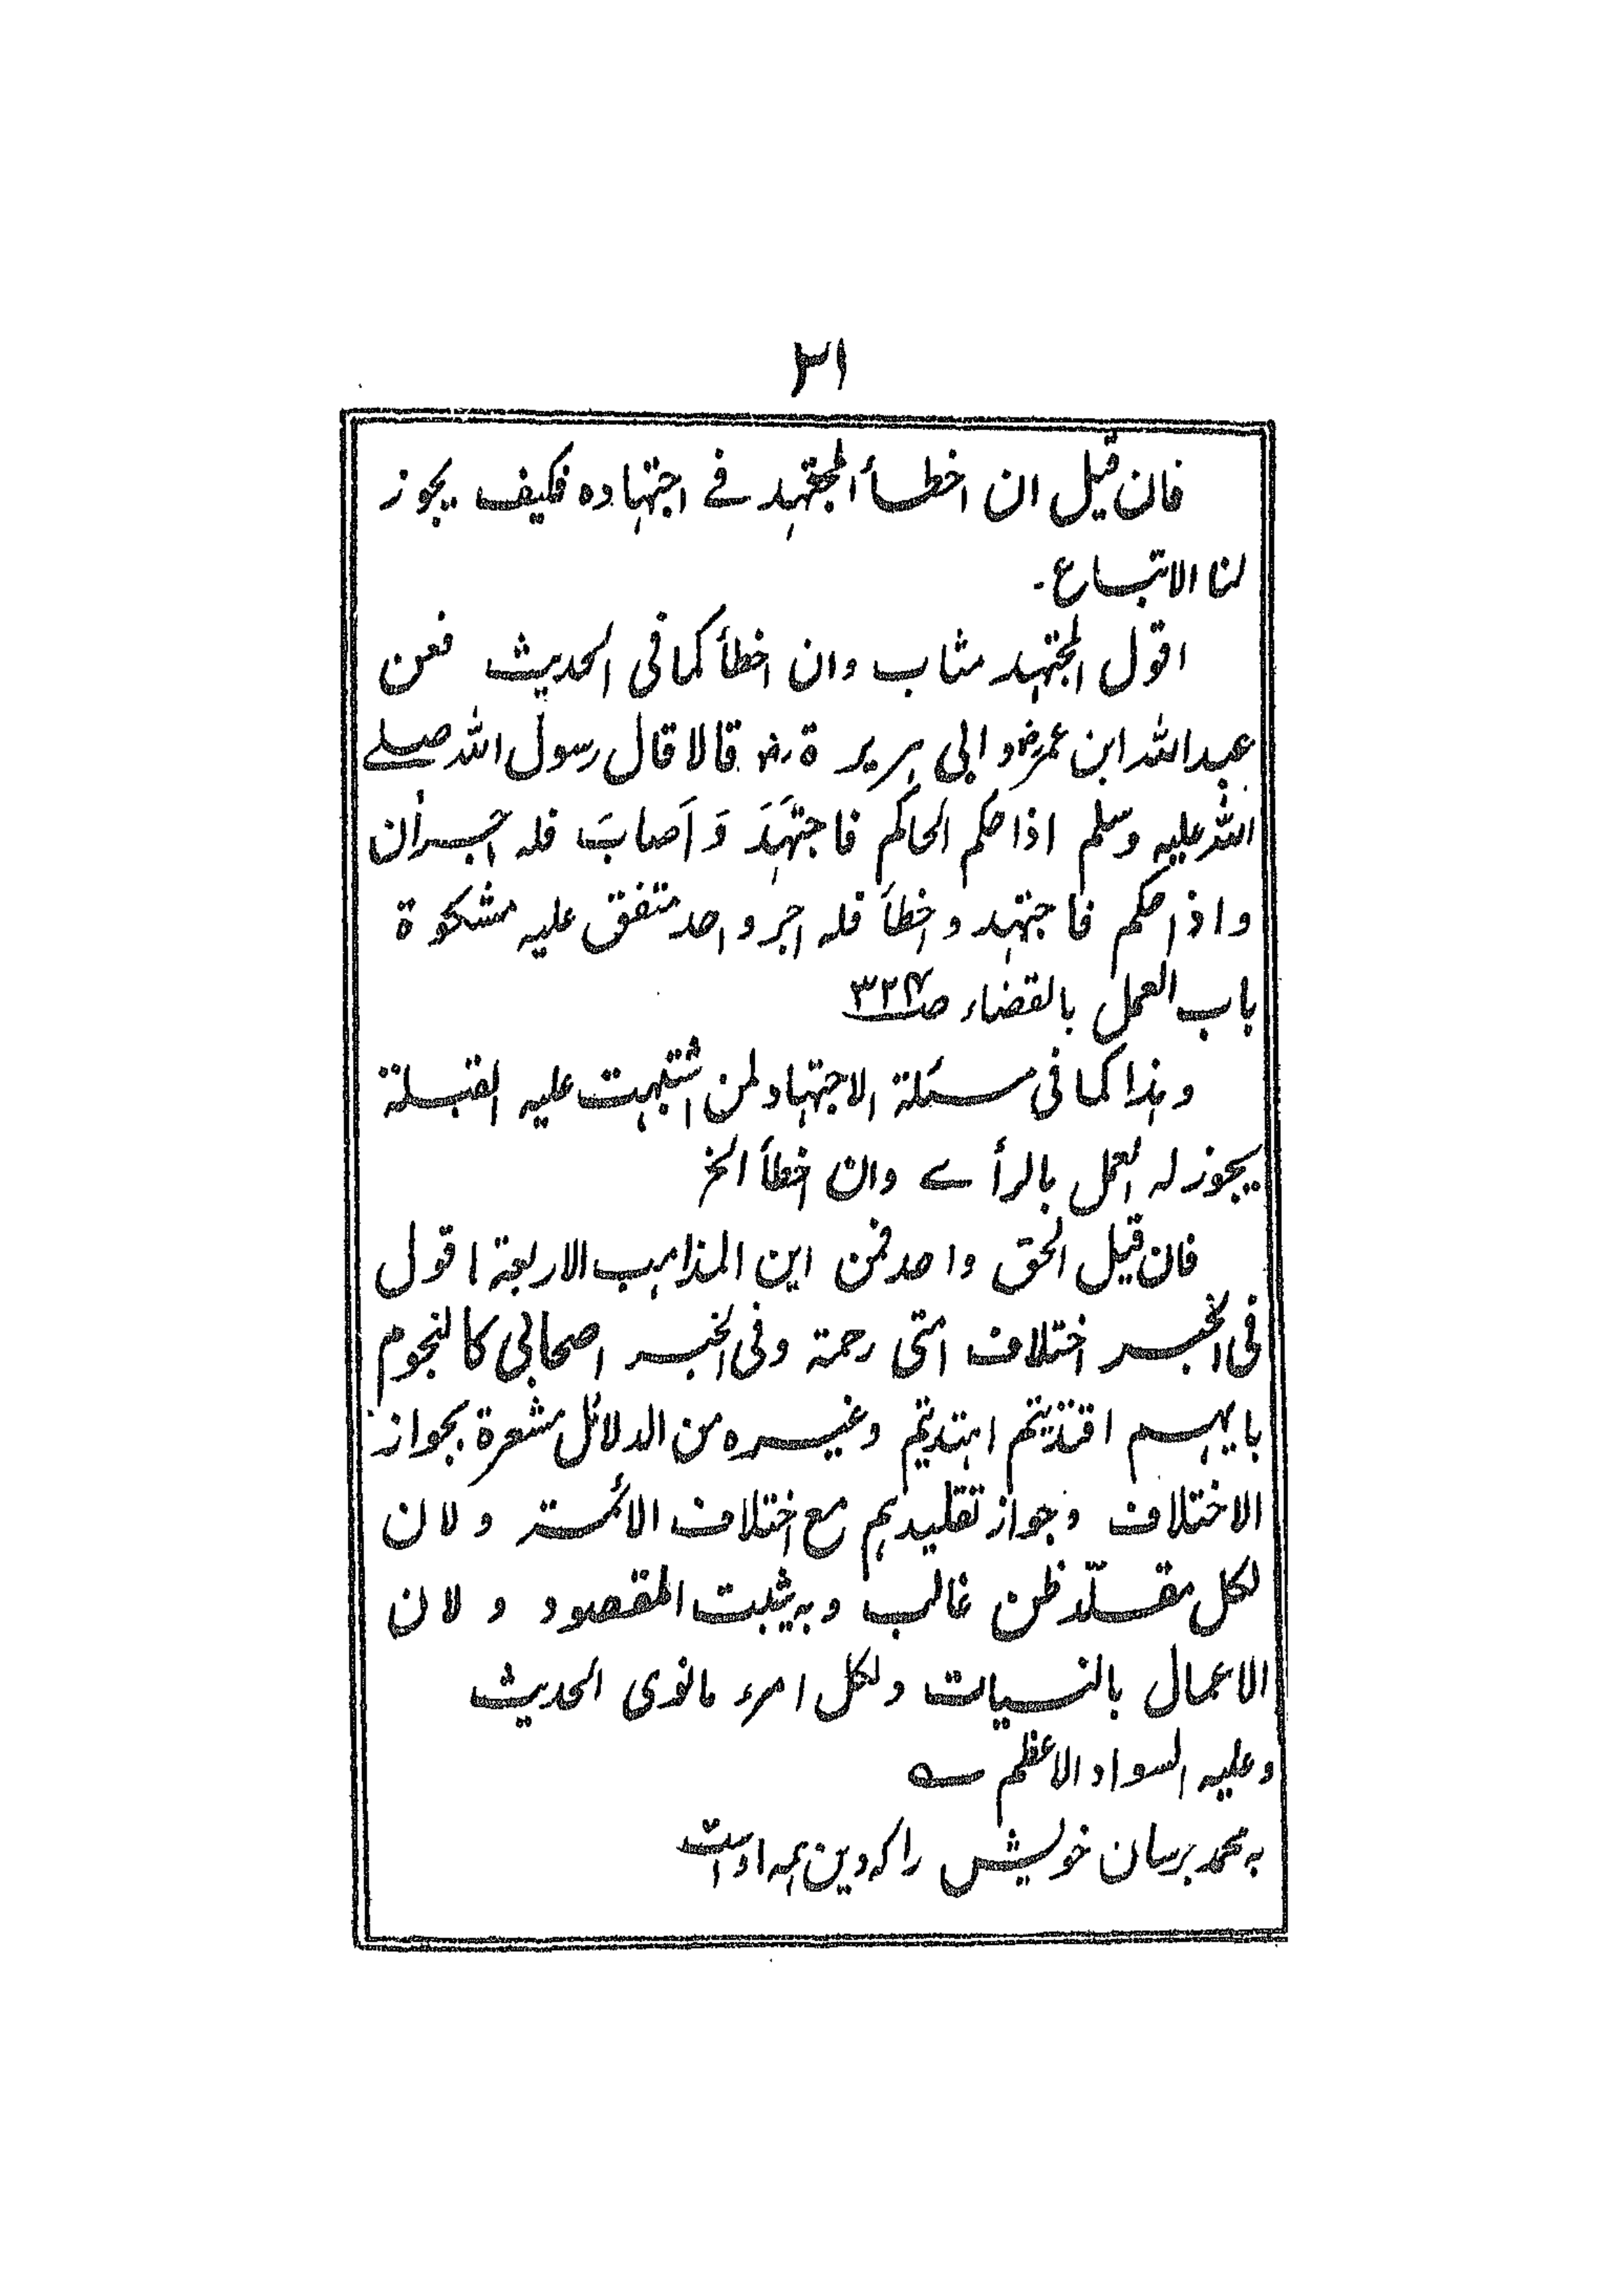 ۳۱
فان قیل ان اخطأ المجتہد فے اجتہادہ فکیف یجوز
لنا الاتباع۔
اقول المجتہد مثاب وان اخطأ کما فی الحدیث فعن
عبداللہ ابن عمرؓ و ابی ہریرۃؓ قالا قال رسول اللہ صلے
اللہ علیہ وسلم اذا حکم الحاکم فاجتہَدَ وَ اَصابَ فلہ اجران
واذا حکم فاجتہد و اخطأ فلہ اجر واحد متفق علیہ مشکوۃ
باب العمل بالقضاء صـ۳۲۴
وہذا کما فی مسئلۃ الاجتہاد لمن اشتبہت علیہ القبلۃ
یجوز لہ العمل بالرأے وان اخطأ الخ
فان قیل الحق واحد فمن این المذاہب الاربعۃ اقول
فی الخبر اختلاف امتی رحمۃ وفی الخبر اصحابی کالنجوم
بایہم اقتدیتم اہتدیتم وغیرہ من الدلائل مشعرۃ بجواز
الاختلاف وجواز تقلیدہم مع اختلاف الائمۃ ولان
لکل مقلّد ظن غالب وبہ یثبت المقصود ولان
الاعمال بالنیات ولکل امرء مانوی الحدیث
وعلیہ السواد الاعظم ؎
بہ محمد برسان خویش را کہ دین ہمہ اوست